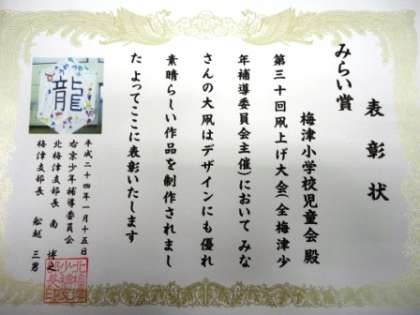 表彰状
みらい賞
梅津小学校児童会 殿
第三十回凧上げ大会(全梅津少
年補導委員会主催)において みな
さんの大凧はデザインにも優れ
素晴らしい作品を制作されまし
た よってここに表彰いたします
龍
平成二十四年一月十五日
右京少年補導委員会
北梅津支部長 南 博之
梅津支部長 船越 三男